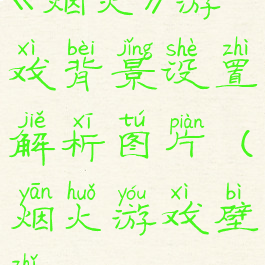 《烟火》游
xì bèi jǐng shè zhì
戏背景设置
jiě xī tú piàn
解析图片(
yān huǒ yóu xì bì
烟火游戏壁
zhǐ